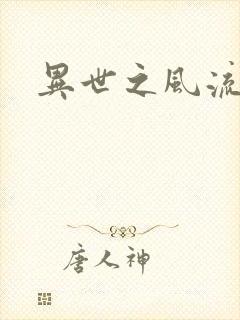 異世之風流
唐人神